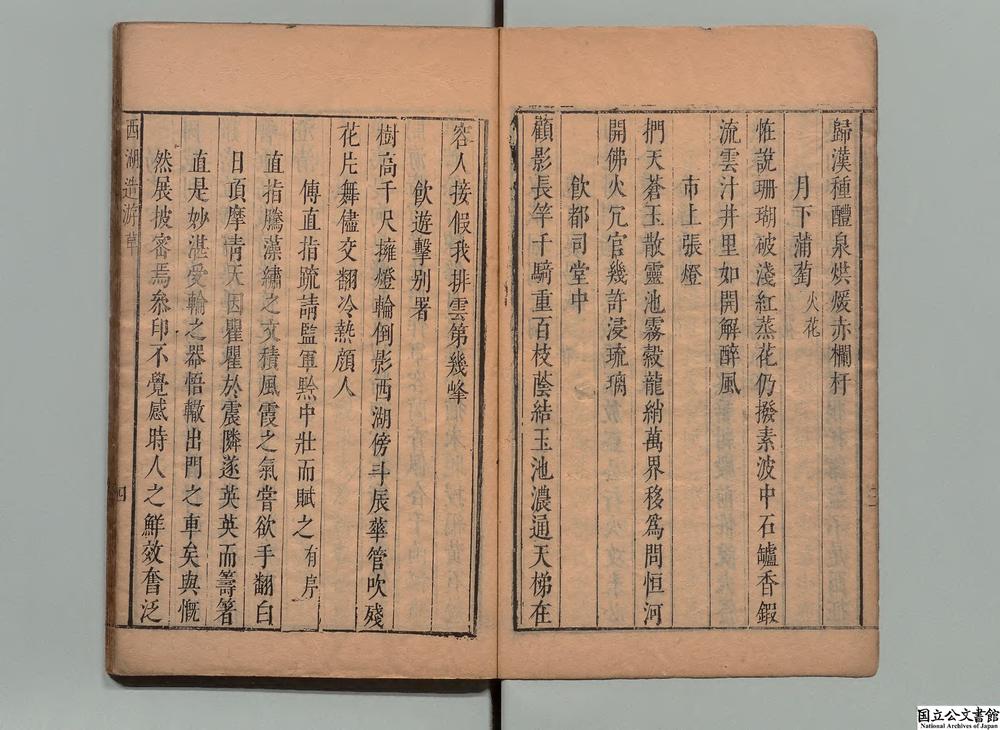 歸漢種醴泉烘煖赤欄杆
月下蒲萄火花
恠說珊瑚破淺紅蒸花仍撥素波中石鑪香鍜
流雲汁井里如開解醉風
市上張燈
捫天蒼玉散靈池霧縠龍綃萬界移為問恒河
開佛火冗官幾許浸琉璃
飲都司堂中
顧影長竿千騎重百枝蔭結玉池濃通天梯在
容人接假我排雲第幾峰
飲遊擊別署
樹高千尺擁燈輪倒影西湖傍斗辰蓽管吹殘
花片舞儘交翻冷熱顏人
傅直指疏請監軍黔中壯而賦之有序
直指騰藻繡之文積風霞之氣嘗欲手翻白
日頂摩青天因瞿瞿於震隣遂英英而籌箸
直是妙湛受輪之器悟轍出門之車矣與慨
然展披密焉叅印不覺感時人之鮮效奮泛
西湖造游草
四
国立公文書館
National Archives of Japan